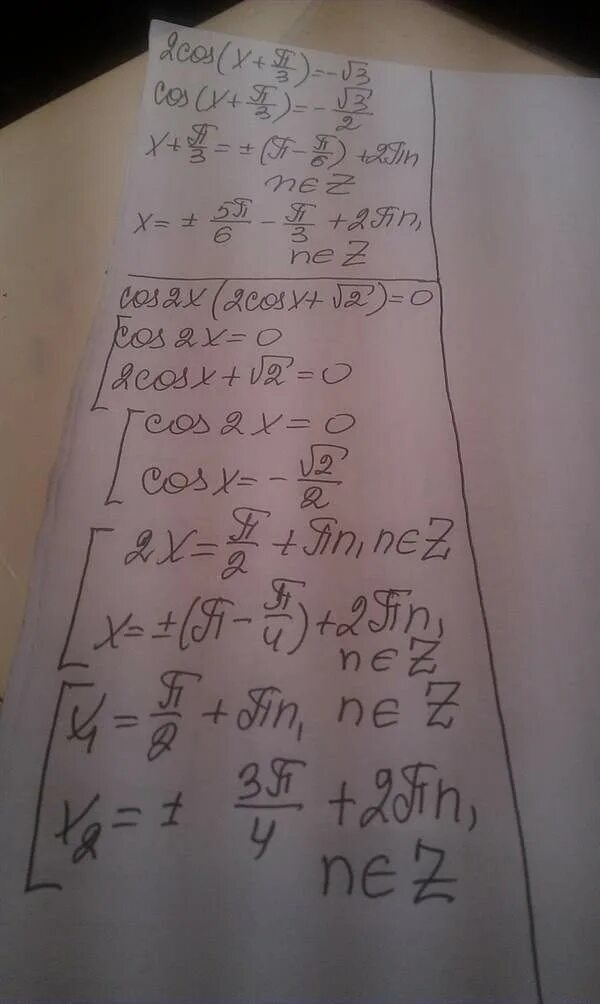 2cos(x+π/3)=-√3
cos(x+π/3)=-√3/2
x+π/3=±(π-π/6)+2πn
n∈Z
x=± 5π/6 - π/3 +2πn,
n∈Z
cos2x(2cosx+√2)=0
cos2x=0
2cosx+√2=0
cos2x=0
cosx=-√2/2
2x=π/2+πn, n∈Z
x=±(π-π/4)+2πn,
n∈Z
x₁=π/2+πn, n∈Z
x₂=± 3π/4 +2πn,
n∈Z